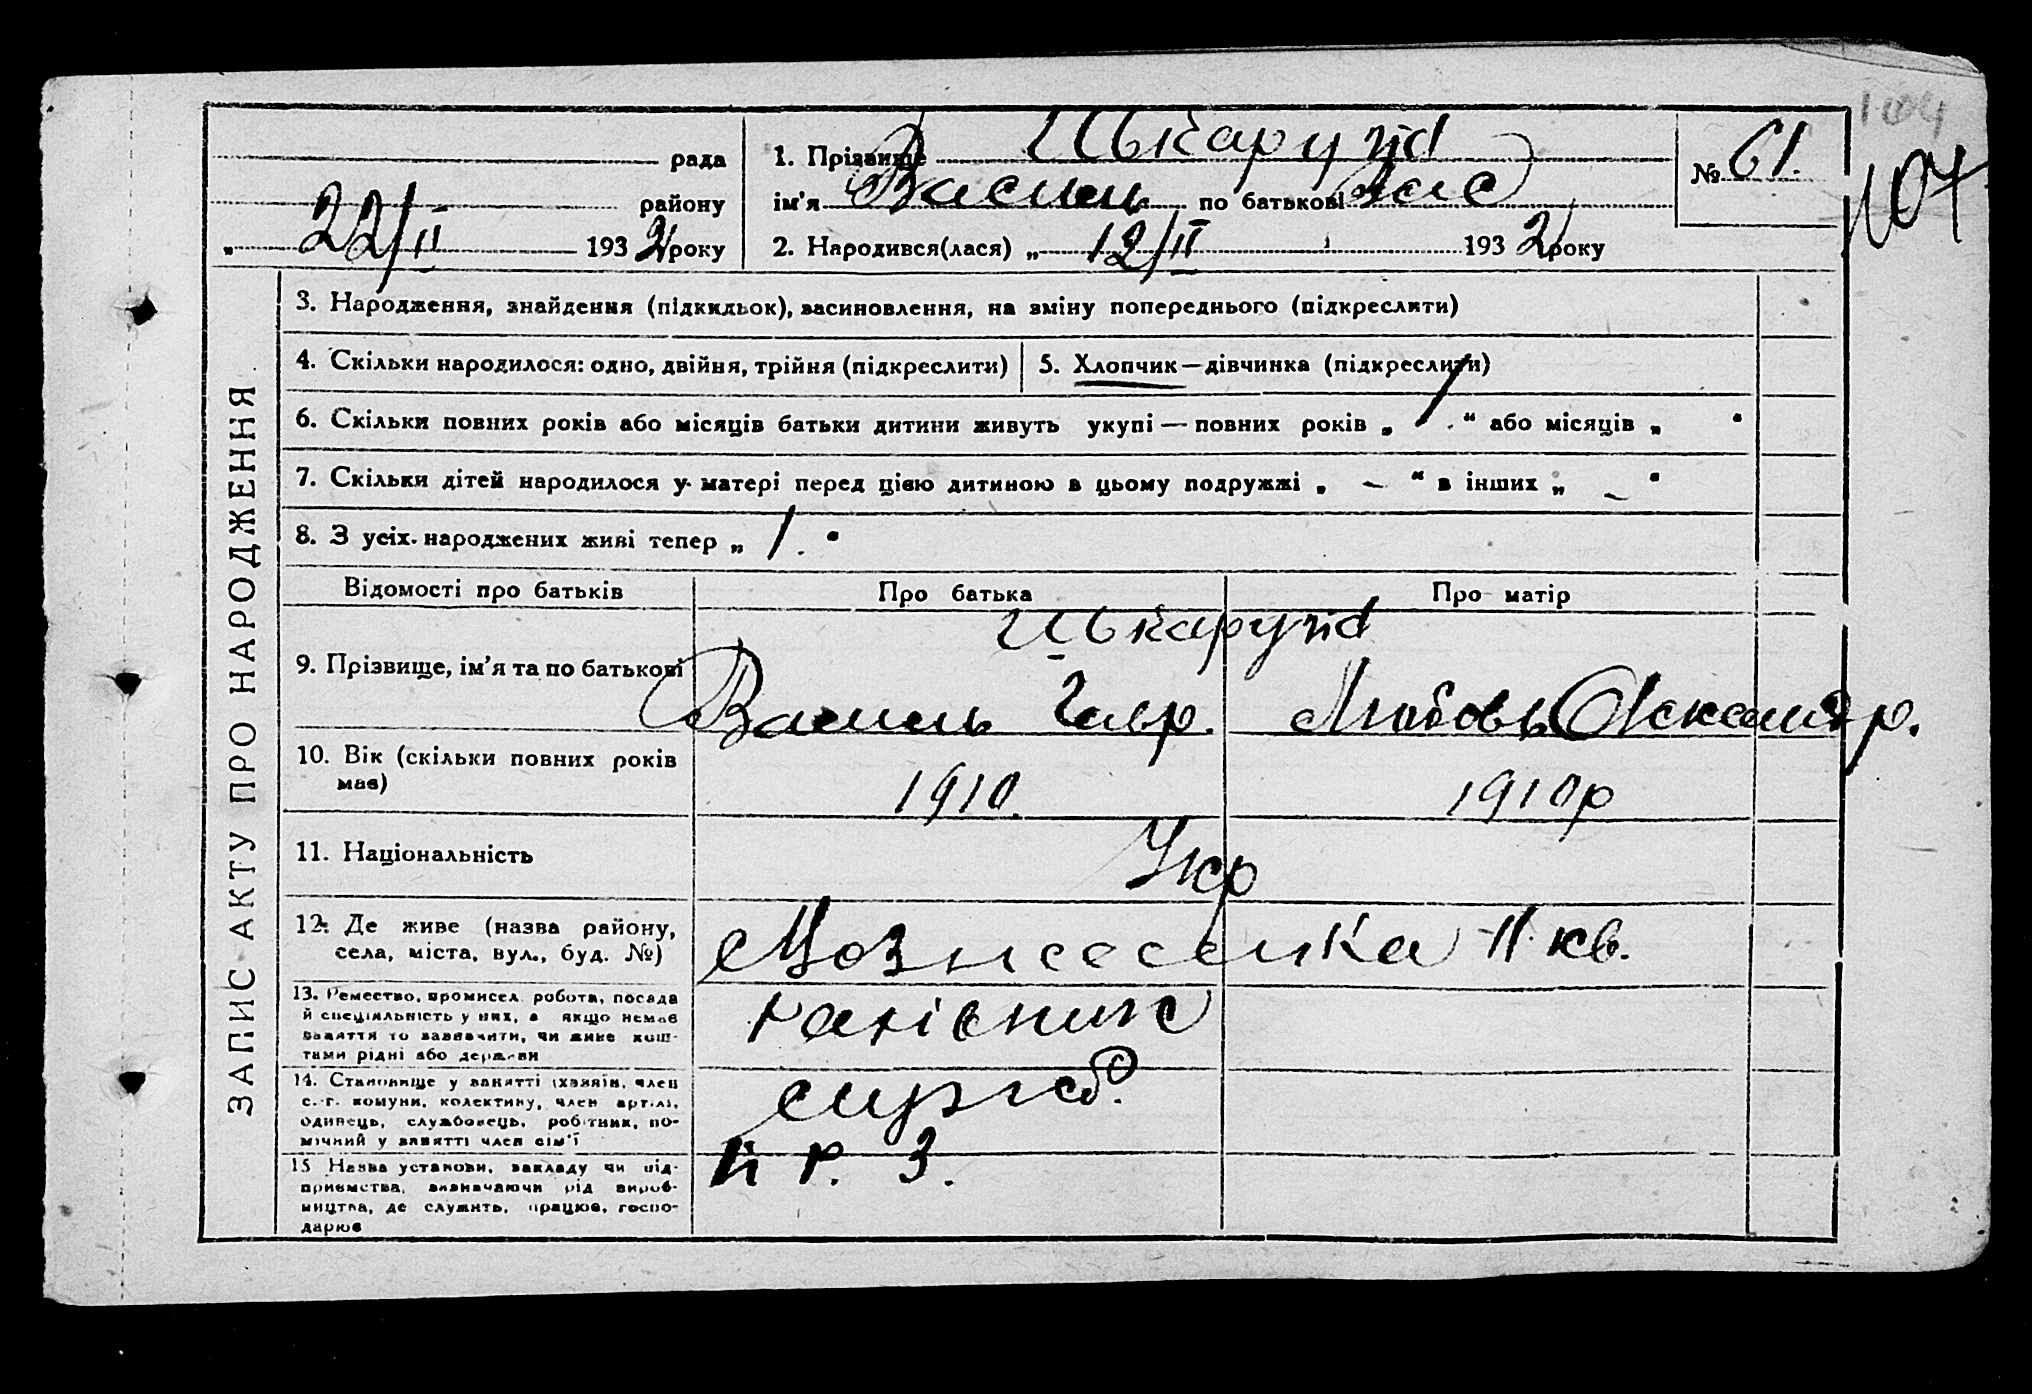 104
107
рада
району
„ 22/II 1932 року
1. Прізвище Шкарупа
ім'я Василь по батькові Вас
2. Народився(лася) „ 12/II 1932 року
№ 61.
ЗАПИС АКТУ ПРО НАРОДЖЕННЯ
3. Народження, знайдення (підкидьок), васиновлення, на зміну попереднього (підкреслити)
4. Скільки народилося: одно, двійня, трійня (підкреслити)
5. Хлопчик—дівчинка (підкреслити)
6. Скільки повних років або місяців батьки дитини живуть укупі — повних років „ 1. “ або місяців „ “
7. Скільки дітей народилося у матері перед цією дитиною в цьому подружжі „ – “ в інших „ – “
8. З усіх народжених живі тепер „ 1. “
Відомості про батьків
Про батька
Про матір
9. Прізвище, ім'я та по батькові
Шкарупа
Василь Гавр.
Любовь Олександр.
10. Вік (скільки повних років
має)
1910.
1910р
11. Національність
Укр
12. Де живе (назва району,
села, міста, вул., буд. №)
Вознесенка 11 кв.
13. Ремество, промисел робота, посада
й спеціяльність у них, а якщо немає
заняття то зазначити, чи живе кош-
тами рідні або держави
14. Становище у занятті (хазяїн, член
с.-г. комуни, колективу, член артілі,
одинець, службовець, робітник, по-
мічний у занятті член сім'ї
служб.
15 Назва установи, закладу чи під-
приємства, визначаючи рід вироб-
ництва, де служить, працює, госпо-
дарює